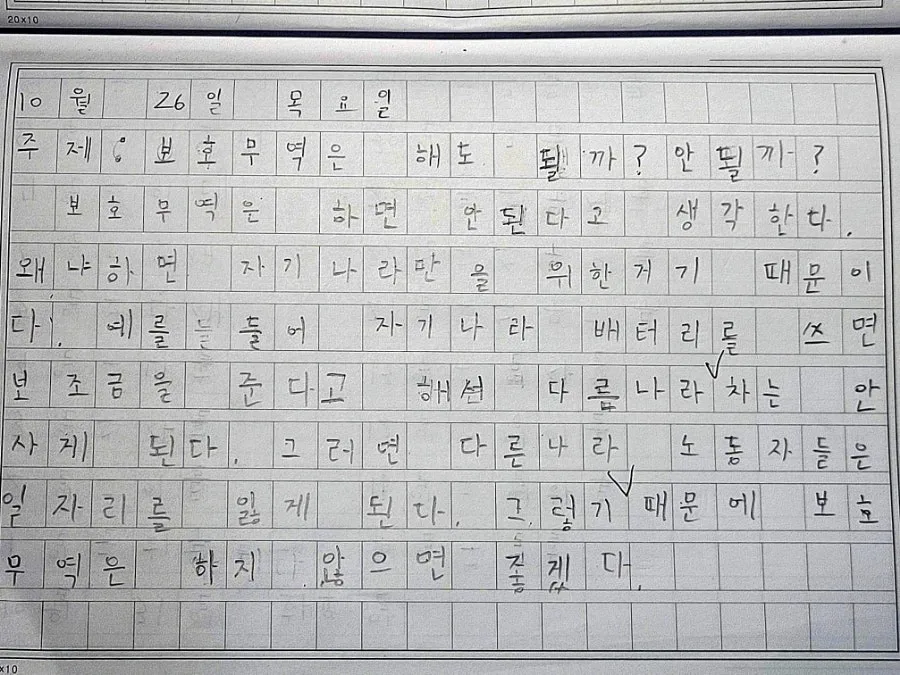 20×10
10월 26일 목요일
주제: 보호무역은 해도 될까? 안 될까?
보호무역은 하면 안된다고 생각한다.
왜냐하면 자기나라만을 위한거기 때문이
다. 예를 들어 자기나라 배터리를 쓰면
보조금을 준다고 해션 다름나라차는 안
사게 된다. 그러면 다른나라 노동자들은
일자리를 잃게 된다. 그렇기때문에 보호
무역은 하지 않으면 좋겠다.
×10